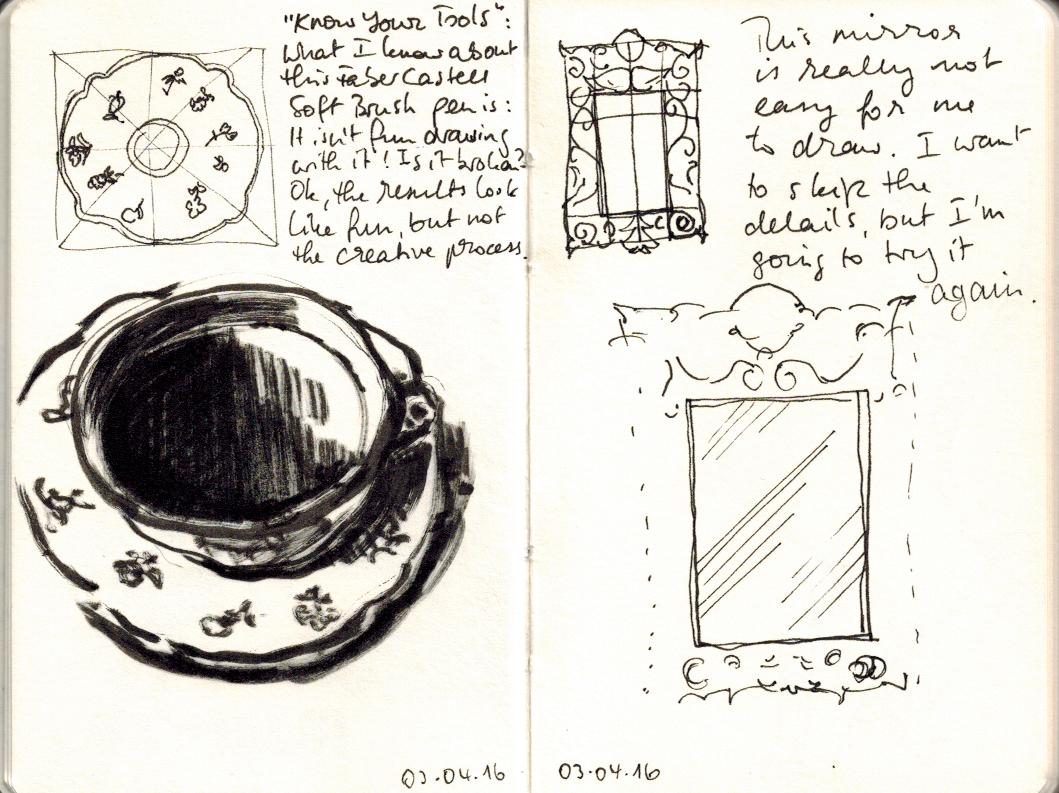 "Know Your Tools":
What I know about
this Faber Castell
Soft Brush pen is:
It isn't fun drawing
with it! Is it broken?
Ok, the results look
like fun, but not
the creative process.
03.04.16
This mirror
is really not
easy for me
to draw. I want
to skip the
details, but I'm
going to try it
again.
03.04.16